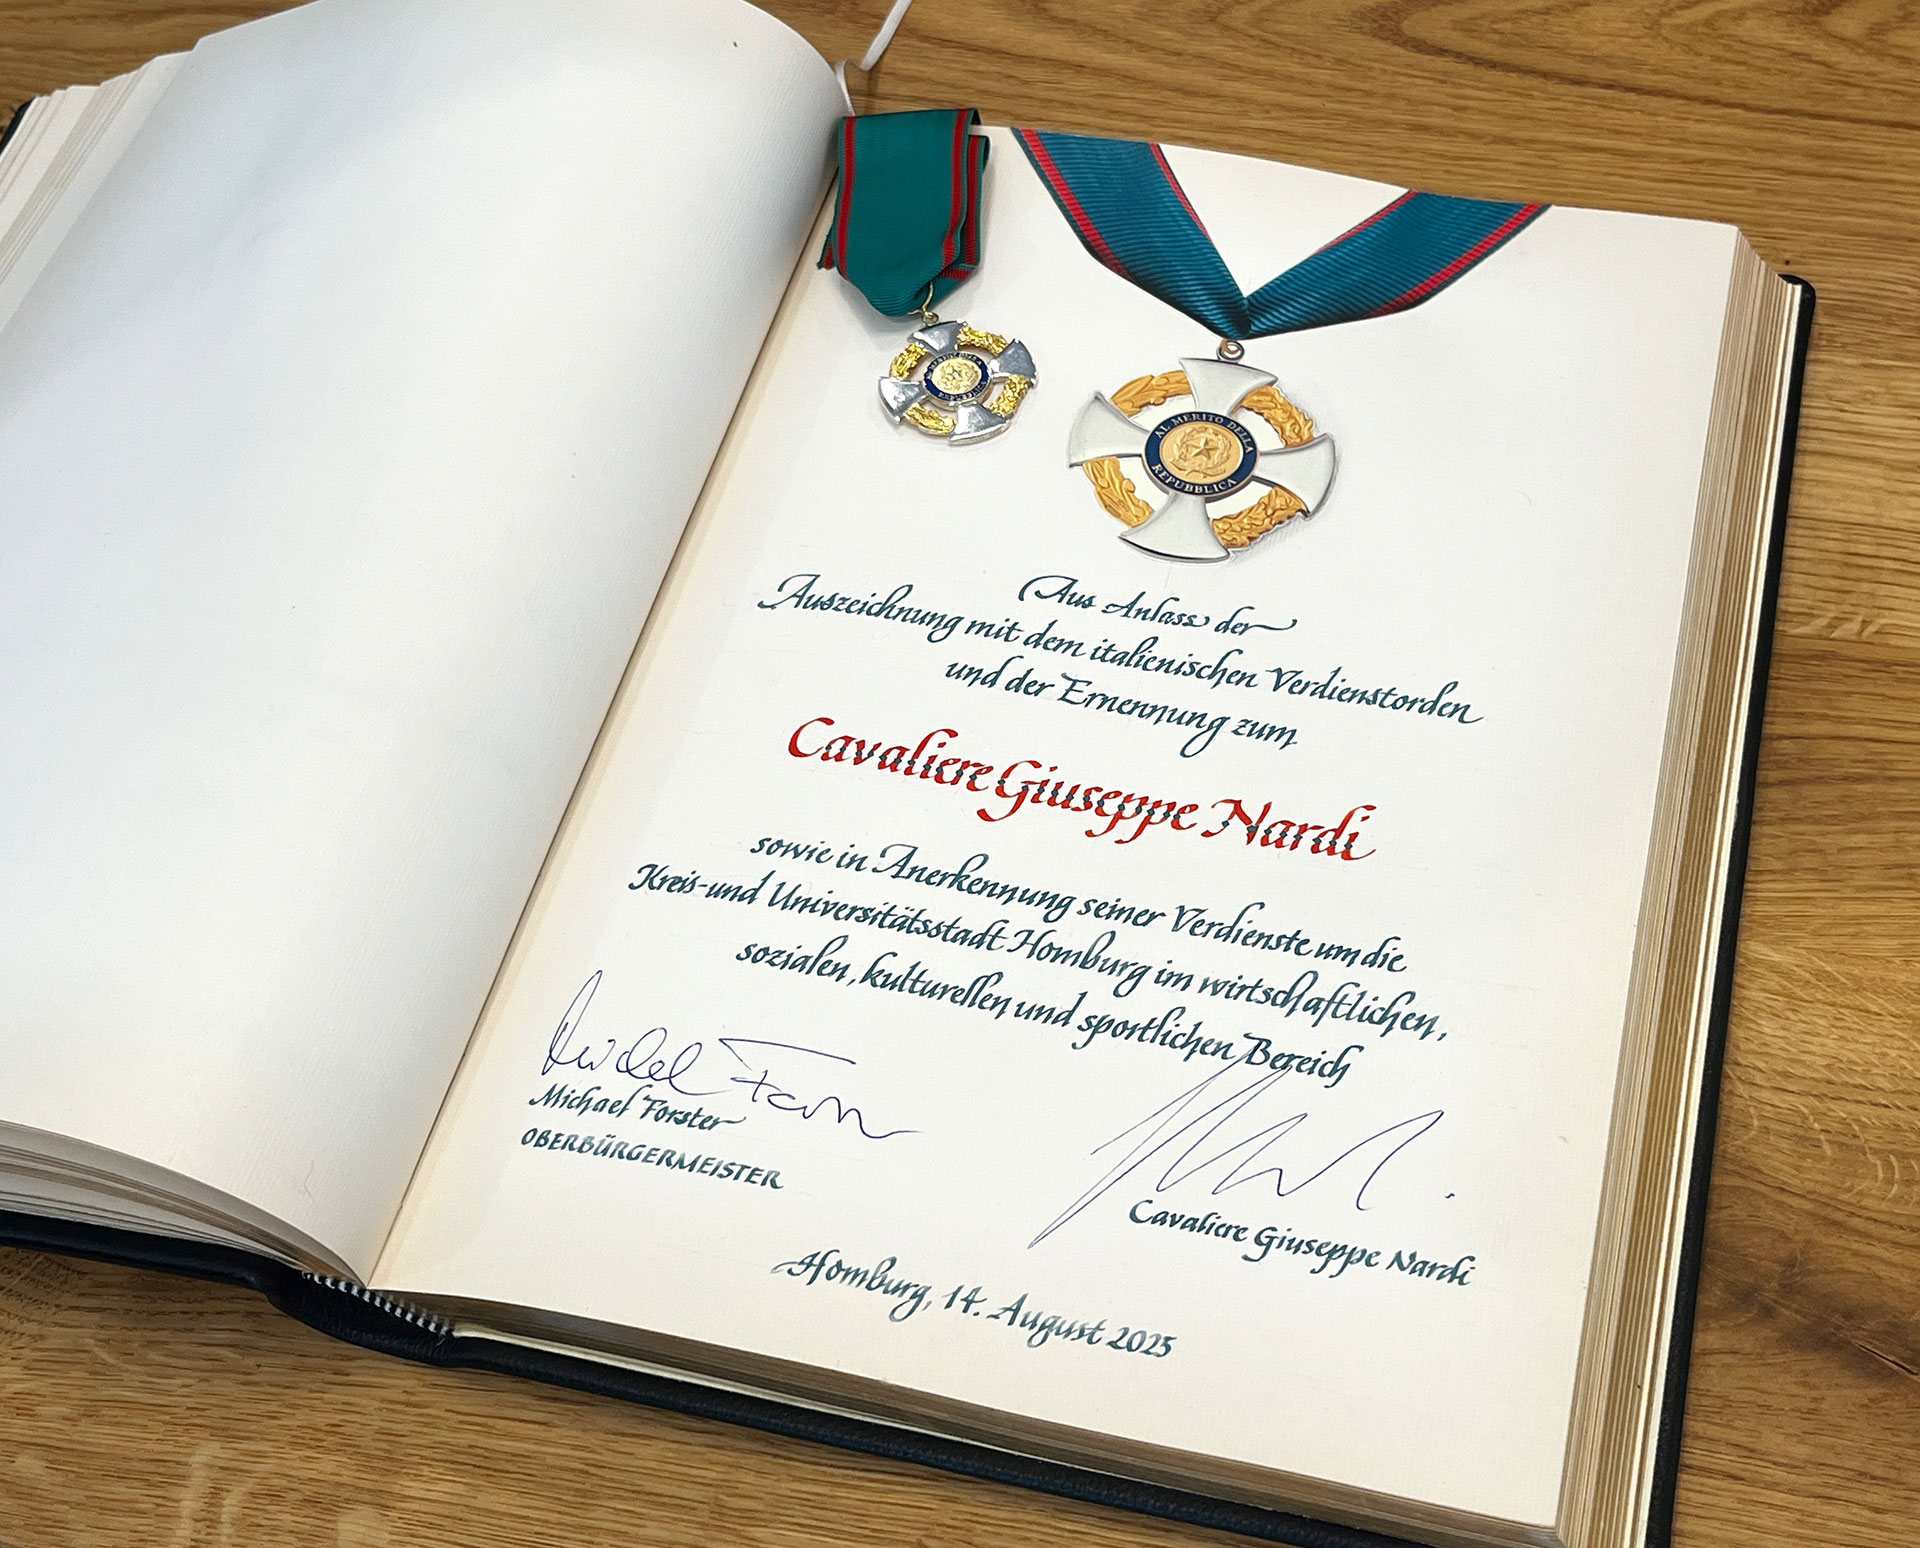 AL MERITO DELLA
REPUBBLICA
Aus Anlass der
Auszeichnung mit dem italienischen Verdienstorden
und der Ernennung zum
Cavaliere Giuseppe Nardi
sowie in Anerkennung seiner Verdienste um die
Kreis- und Universitätsstadt Homburg im wirtschaftlichen,
sozialen, kulturellen und sportlichen Bereich
Michael Forster
OBERBÜRGERMEISTER
Cavaliere Giuseppe Nardi
Homburg, 14. August 2025